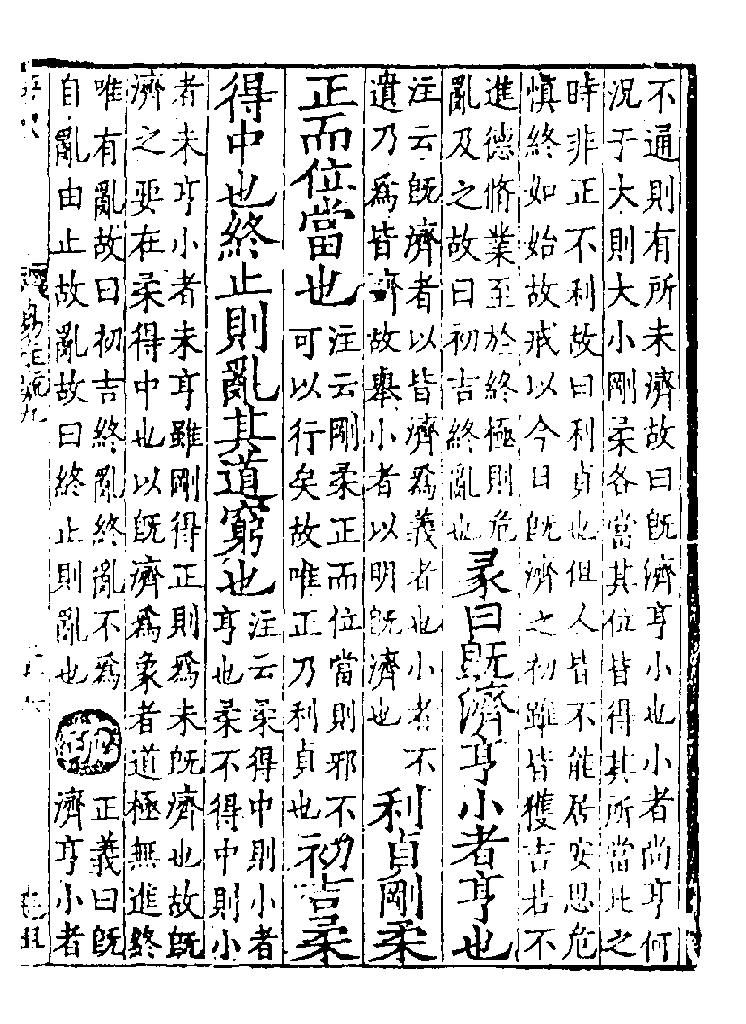 不通則有所未濟故曰既濟亨小也小者尚亨何
況于大則大小剛柔各當其位皆得其所當此之
時非正不利故曰利貞也但人皆不能居安思危
慎終如始故戒以今日既濟之初雖皆獲吉若不
進德脩業至於終極則危
亂及之故曰初吉終亂也
彖曰既濟亨小者亨也
注云既濟者以皆濟爲義者也小者不
遺乃爲皆濟故舉小者以明既濟也
利貞剛柔
正而位當也
注云剛柔正而位當則邪不
可以行矣故唯正乃利貞也
初吉柔
得中也終止則亂其道窮也
注云柔得中則小者
亨也柔不得中則小
者未亨小者未亨雖剛得正則爲未既濟也故既
濟之要在柔得中也以既濟爲象者道極無進終
唯有亂故曰初吉終亂終亂不爲
自亂由止故亂故曰終止則亂也
疏
正義曰既
濟亨小者